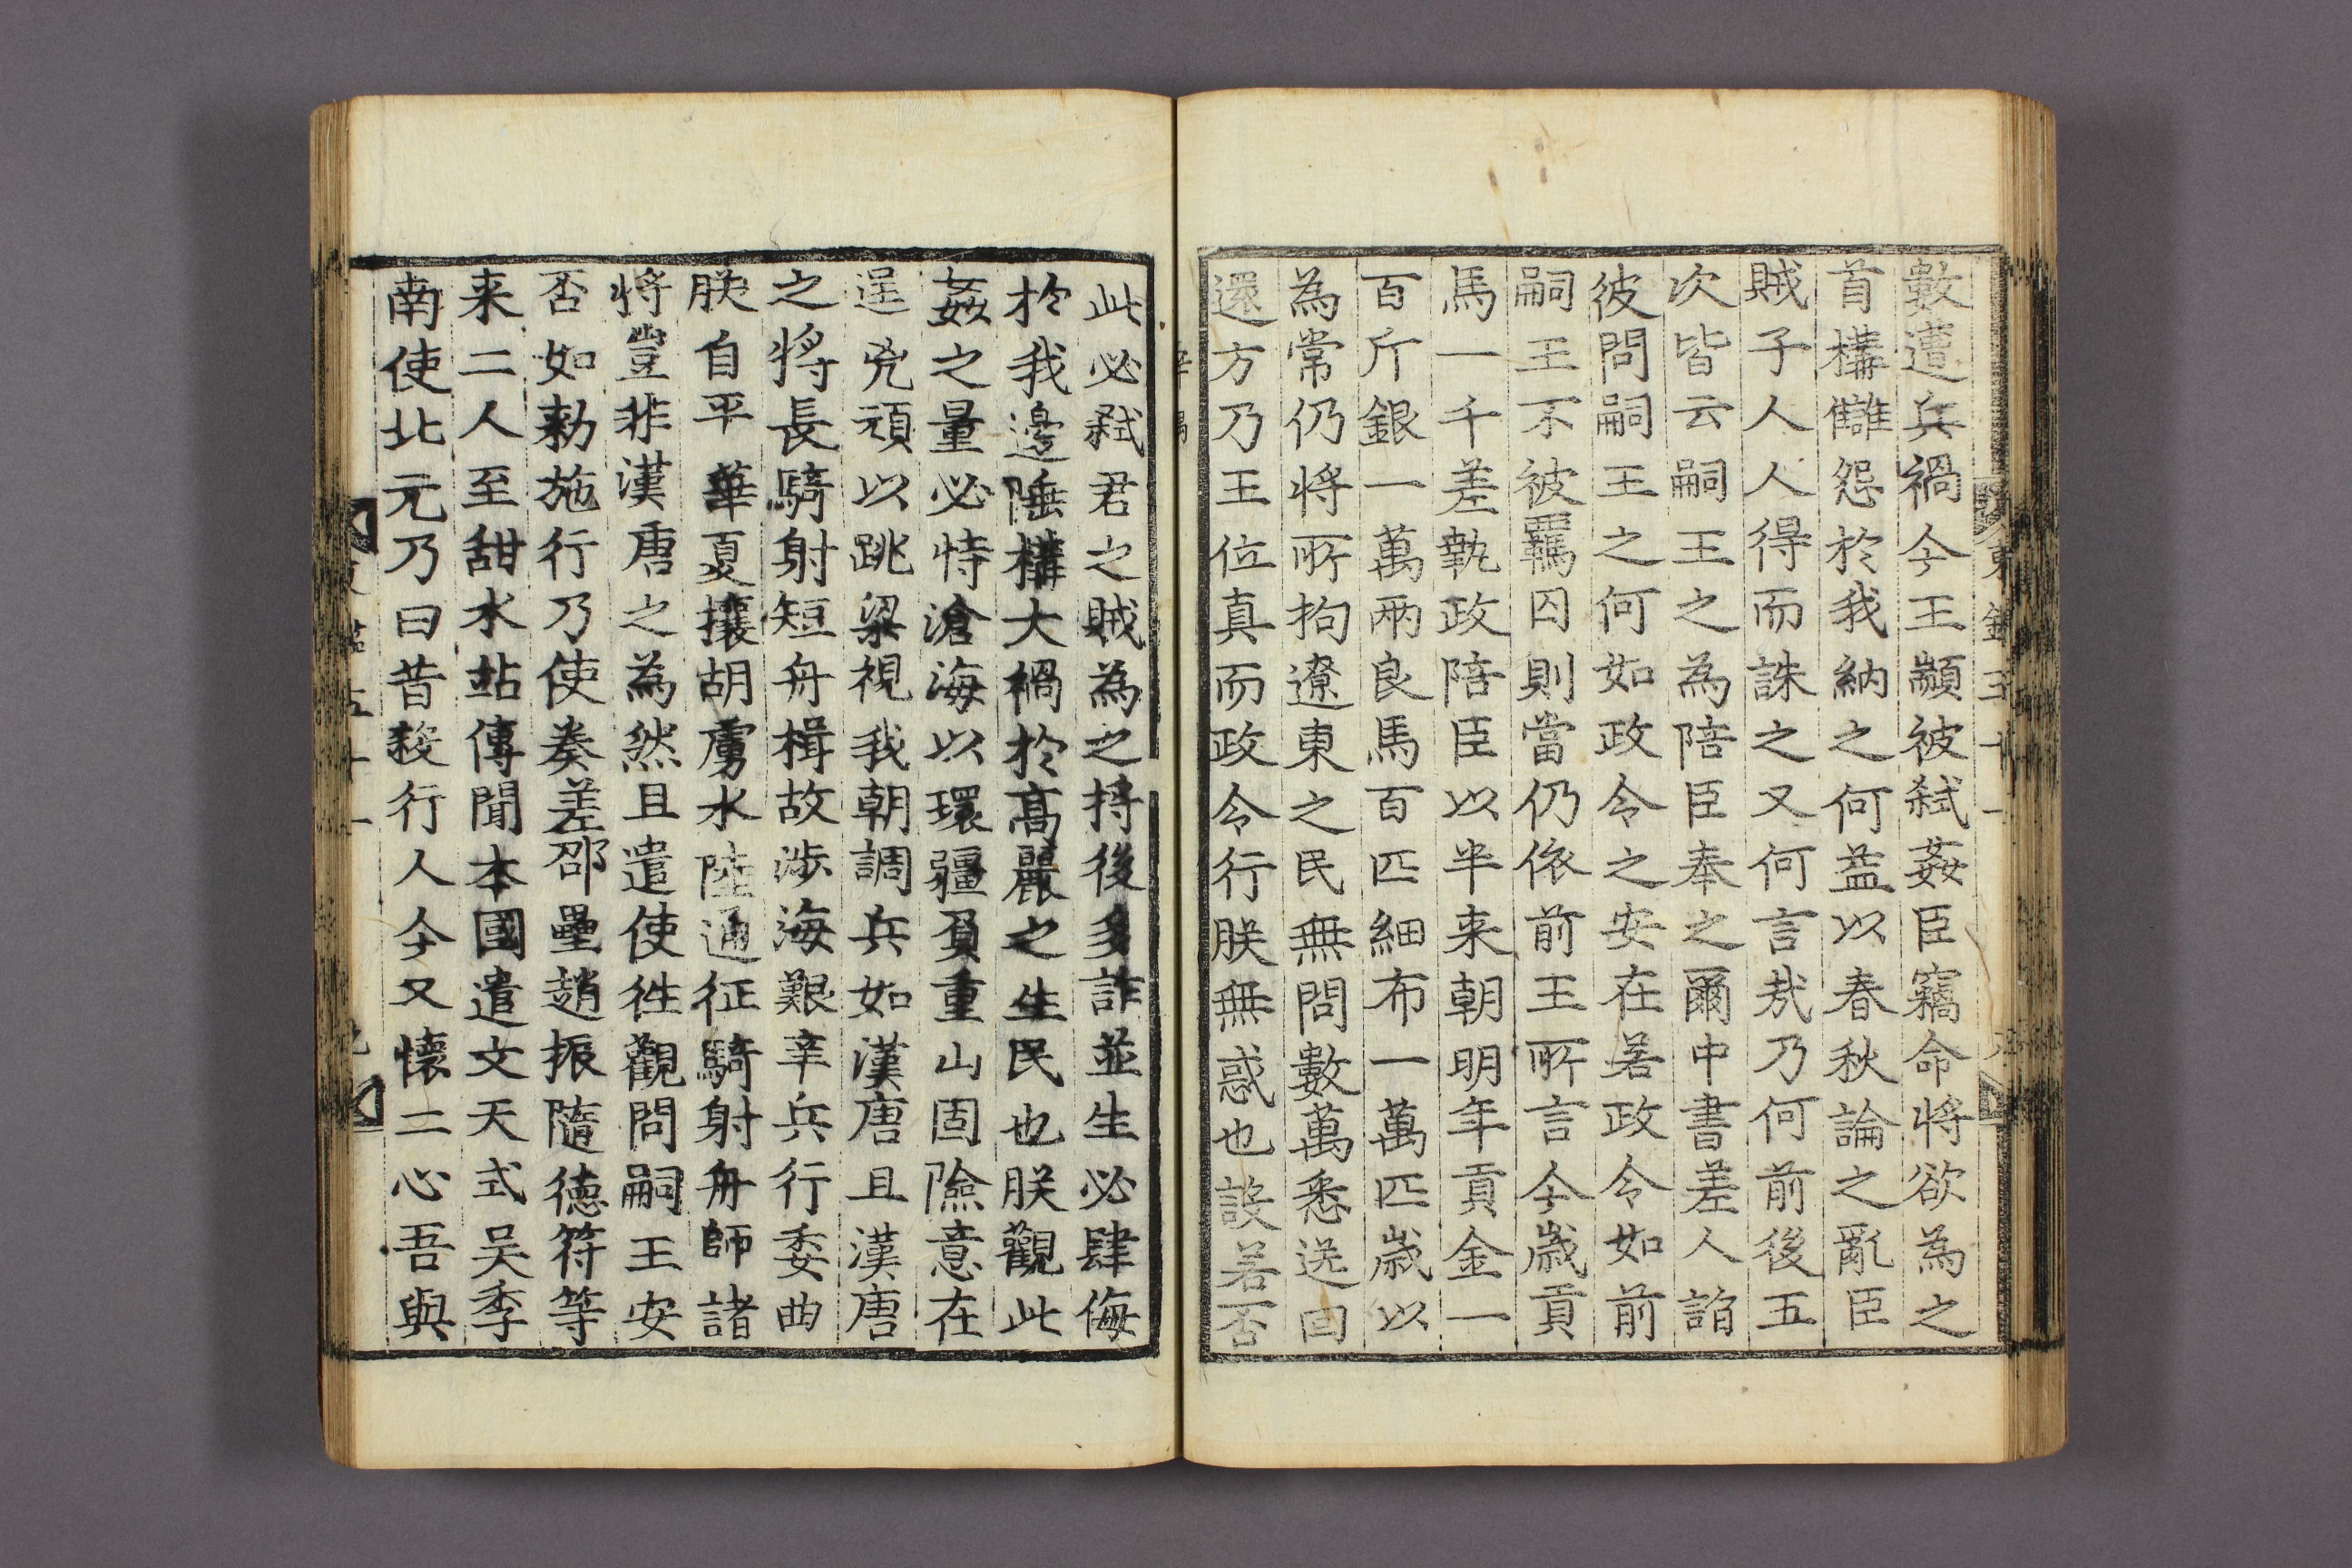 數遭兵禍今王顓被弑姦臣竊命將欲為之
首構讎怨於我納之何益以春秋論之亂臣
賊子人人得而誅之又何言㢤乃何前後五
次皆云嗣王之為陪臣奉之爾中書差人詣
彼問嗣王之何如政令之安在若政令如前
嗣王不被羈囚則當仍依前王所言今歲貢
馬一千差執政陪臣以半来朝明年貢金一
百斤銀一萬兩良馬百匹細布一萬匹歲以
為常仍將所拘遼東之民無問數萬悉送回
還方乃王位真而政令行朕無惑也設若否
此必弑君之賊為之将後多詐並生必肆侮
於我邊陲構大禍於高麗之生民也朕觀此
姦之量必恃滄海以環疆負重山固險意在
逞兇頑以跳梁視我朝調兵如漢唐且漢唐
之將長騎射短舟楫故涉海艱辛兵行委曲
朕自平華夏攘胡虜水陸通征騎射舟師諸
將豈非漢唐之為然且遣使往觀問嗣王安
否如勑施行乃使奏差邵壘趙振隨德符等
来二人至甜水站傳聞本國遣文天式吴季
南使北元乃曰昔殺行人今又懷二心吾與